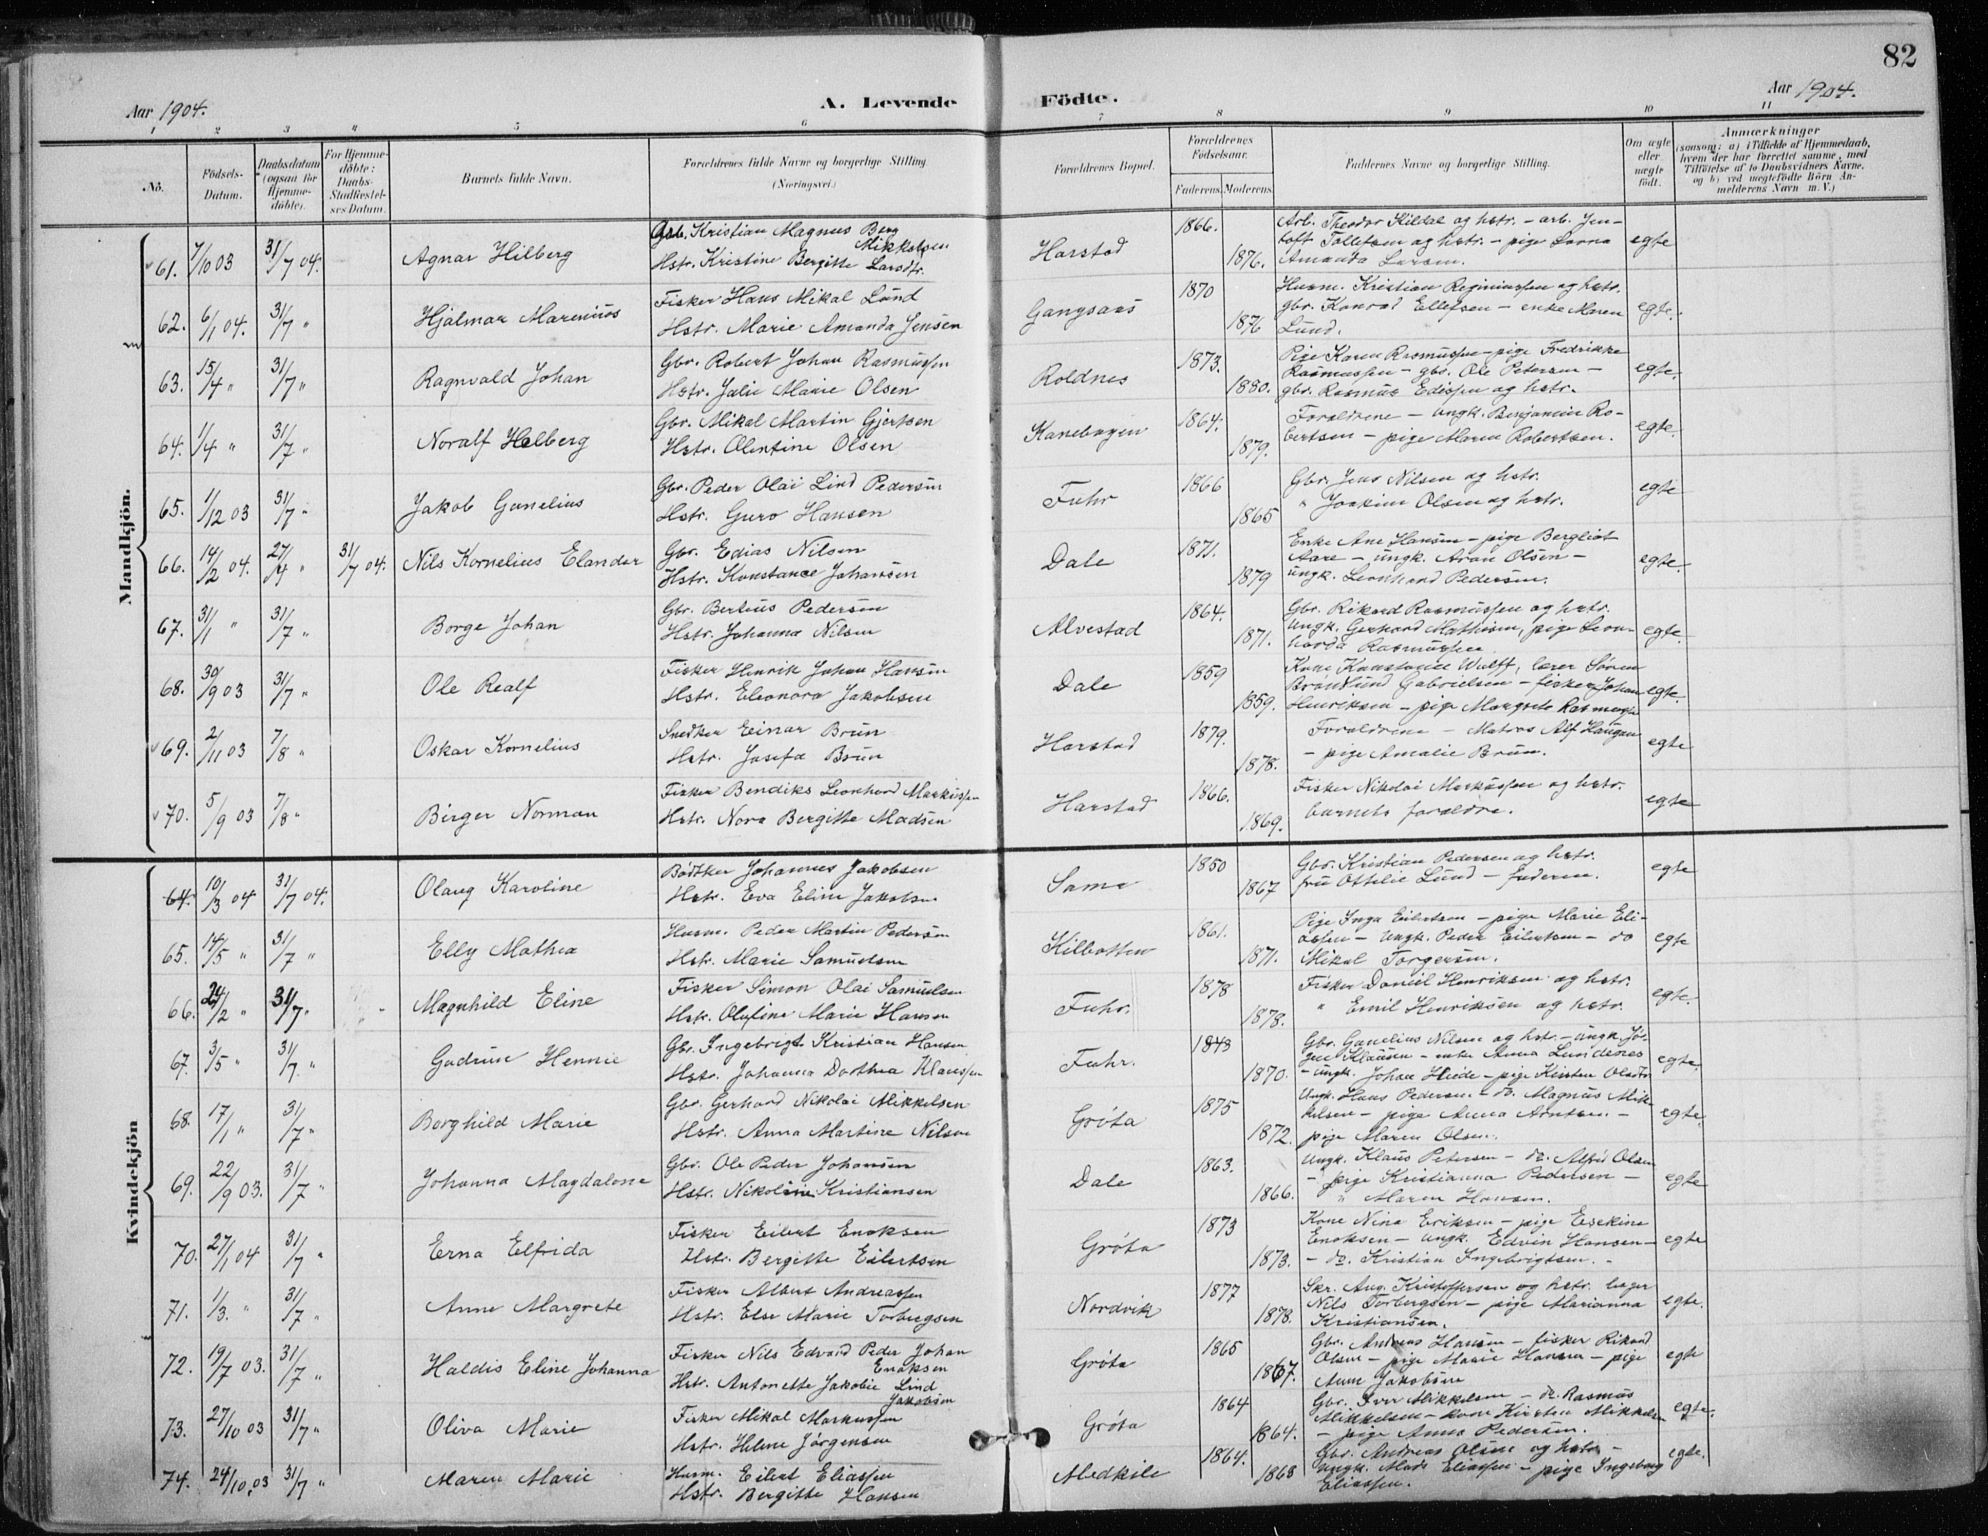 82
Aar 1904. A. Levende Födte. Aar 1904.
1 2 3 4 5 6 7 8 9 10 11
No. Födsels-Datum. Daabsdatum (ogsaa for Hjemme-döbte). For Hjemme-döbte: Daabs-Stadfæstel-ses Datum. Barnets fulde Navn. Forældrenes fulde Navne og borgerlige Stilling (Næringsvei.) Forældrenes Bopæl. Forældrenes Födselsaar. Faderens. Moderens. Faddernes Navne og borgerlige Stilling. Om ægte eller uægte födt. Anmærkninger (saasom: a) i Tilfælde af Hjemmedaab, hvem der har forrettet samme, med Tilföielse af to Daabsvidners Navne. og b) ved uægtefödte Börn An-melderens Navn m. V.)
Mandkjön.
61. 7/10 03 31/7 04. Agnar Hilberg Gbr. Kristian Magnus Berg Mikkelsen Harstad 1866. Arb. Theodor Kildal og hstr. - arb. Jen-
Hstr. Kristine Bergitte Larsdtr. 1876. toft Tollefsen og hstr. - pige Lorna Amanda Larsen. egte
62. 6/1 04. 31/7 " Hjalmar Marenius Fisker Hans Mikal Lund Gangsaas 1870 Husm. Kristian Reginiussen og hstr.
Hstr. Marie Amanda Jensen 1876 gbr. Konrad Ellefsen - enke Maren Lund. egte.
63. 15/4 " 31/7 " Ragnvald Johan Gbr. Robert Johan Rasmussen Roldnes 1873. Pige Karen Rasmussen - pige Fredrikke
Hstr. Julie Marie Olsen 1880. Rasmussen - gbr. Ole Petersen - gbr. Rasmus Edissen og hstr. egte.
64. 1/4 " 31/7 " Noralf Helberg Gbr. Mikal Martin Gjertsen Kanebogen 1864. Forældrene - ungk. Benjamin Ro-
Hstr. Olentine Olsen 1879. bertsen - pige Maren Robertsen. egte.
65. 1/12 03 31/7 " Jakob Gunelius Gbr. Peder Olai Lind Pedersen Fuhr 1866 Gbr. Jens Nilsen og hstr.
Hstr. Guro Hansen 1865 " Joakim Olsen og hstr. egte
66. 14/2 04. 27/4 " 31/7 04. Nils Kornelius Elander Gbr. Edias Nilsen Dale 1871. Enke Ane Hansen - pige Bergliot
Hstr. Konstance Johansen 1879 Aare - ungk. Aron Olsen - ungk. Leonhard Pedersen. egte.
67. 31/1 " 31/7 " Borge Johan Gbr. Bertius Pedersen Alvestad 1864. Gbr. Rikard Rasmussen og hstr.
Hstr. Johanna Nilsen 1871. Ungk. Gerhard Mathisen, pige Leon-harda Rasmussen egte.
68. 30/9 03 31/7 " Ole Realf Fisker Henrik Johan Hansen Dale 1859 Kone Konstance Wulff, lærer Søren
Hstr. Eleonora Jakobsen 1859. Brønlund Gabrielsen - fisker Johan Henriksen - pige Margrete Rasmussen egte.
69. 2/11 03 7/8 " Oskar Kornelius Snedker Einar Brun Harstad 1879. Forældrene - Matros Alf Haugen
Hstr. Josefa Brun 1878. - pige Amalie Brun. egte
70. 5/9 03 7/8 " Birger Norman Fisker Bendiks Leonhard Markussen Harstad 1866. Fisker Nikolai Markussen og hstr.
Hstr. Nora Bergitte Madsen 1869. barnets forældre. egte
Kvindekjön
64. 10/3 04 31/7 04. Olaug Karoline Bødker Johannes Jakobsen Sama 1850 Gbr. Kristian Pedersen og hstr.
Hstr. Eva Eline Jakobsen 1867 fru Ottilie Lund - faderen. egte
65. 14/5 " 31/7 " Elly Mathea Husm. Peder Martin Pedersen Kilbotten 1861. Pige Inga Eilertsen - pige Marie Eli-
Hstr. Marie Samuelsen 1871. assen - Ungk. Peder Eilertsen - do Mikal Torgersen. egte
66. 24/2 " 31/7 " Magnhild Eline Fisker Simon Olai Samuelsen Fuhr. 1878 Fisker Daniel Henriksen og hstr.
Hstr. Olufine Marie Hansen 1878. " Emil Henriksen og hstr. egte.
67. 3/5 " 31/7 " Gudrun Hennie Gbr. Ingebrigt Kristian Hansen Fuhr. 1843 Gbr. Gunelius Nilsen og hst. - ungk. Jö-
Hstr. Johanna Dorthea Klaussen 1870. gen Klausen - enke Anna Lundenes - ungk. Johan Heide - pige Kirsten Olsdtr egte.
68. 17/1 " 31/7 " Borghild Marie Gbr. Gerhard Nikolai Mikkelsen Grøta 1875 Ungk. Hans Pedersen - do. Magnus Mik-
Hstr. Anna Martine Nilsen 1872. kelsen - pige Anna Arntsen - pige Maren Olsen. egte.
69. 22/9 03. 31/7 " Johanna Magdalena Gbr. Ole Peder Johansen Dale 1863. Ungk. Klaus Petersen - do. Alfr. Olsen
Hstr. Nikoline Kristiansen 1866. - pige Kristianna Pedersen - " Maren Hansen. egte
70. 27/1 04 31/7 " Erna Elfrida Fisker Eilert Enoksen Grøta 1873 Kone Nina Eriksen - pige Eeskine
Hstr. Bergitte Eilertsen 1873. Enoksen - ungk. Edvin Hansen - do. Kristian Ingebrigtsen. egte
71. 1/3. " 31/7 " Anne Margrete Fisker Albert Andreassen Nordvik 1877 Skr. Aug. Kristoffersen og hstr. bager
Hstr. Else Marie Torbergsen 1878. Nils Torbergsen - pige Marianna Kristiansen. egte.
72. 19/7 03. 31/7 " Haldis Eline Johanna Fisker Nils Edvard Peder Johan Enoksen Grøta 1865 Gbr. Andreas Hansen - fisker Rikard
Hstr. Antonette Jakobie Lind Jakobsen 1867. Olsen - pige Marie Hansen - pige Anne Jakobsen egte
73. 27/10 03 31/7 " Oliva Marie Fisker Mikal Markussen Grøta 1864 Gbr. Iver Mikkelsen - do. Rasmus
Hstr. Helene Jørgensen 1864. Mikkelsen - kone Kirsten Mikkelsen - pige Anna Pedersen. egte.
74. 24/10.03 31/7 " Maren Marie Husm. Eilert Eliassen Medkile 1864. Gbr. Andreas Olsen og hstr. -
Hstr. Bergitte Hansen 1868 ungk. Mads Eliassen - pige Ingeborg Eliassen. egte.